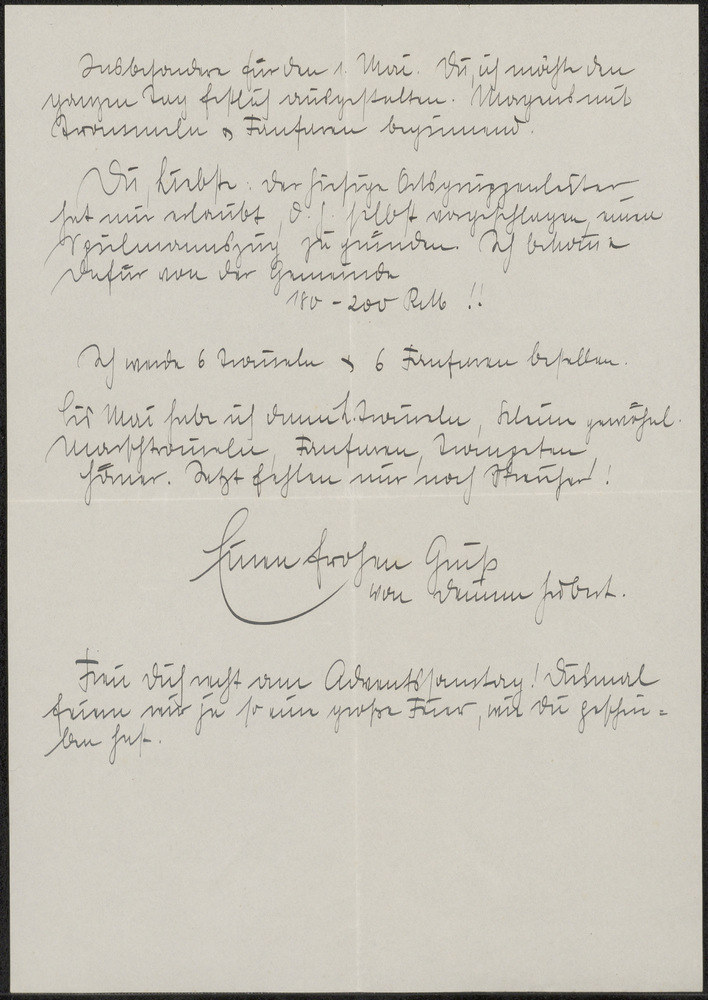 Insbesondere für den 1. Mai. Du, ich möchte den
ganzen Tag festlich ausgestalten. Morgens mit
Trommeln & Fanfaren beginnend.
Du, Liebste: der hiesige Ortsgruppenleiter
hat mir erlaubt, d. h. selbst vorgeschlagen, einen
Spielmannszug zu gründen. Ich bekomme
dafür von der Gemeinde
180 - 200 RM !!
Ich werde 6 Trommeln & 6 Fanfaren bestellen.
Bis Mai habe ich dann L.trommeln, kleine gewöhnl.
Marschtrommeln, Fanfaren, Trompeten
Hörner. Jetzt fehlen nur noch Streicher!
Einen frohen Gruß
von Deinem Herbert.
Freu Dich recht am Adventssonntag! Diesmal
feiern wir ja so eine große Feier, wie Du geschrie=
ben hast.